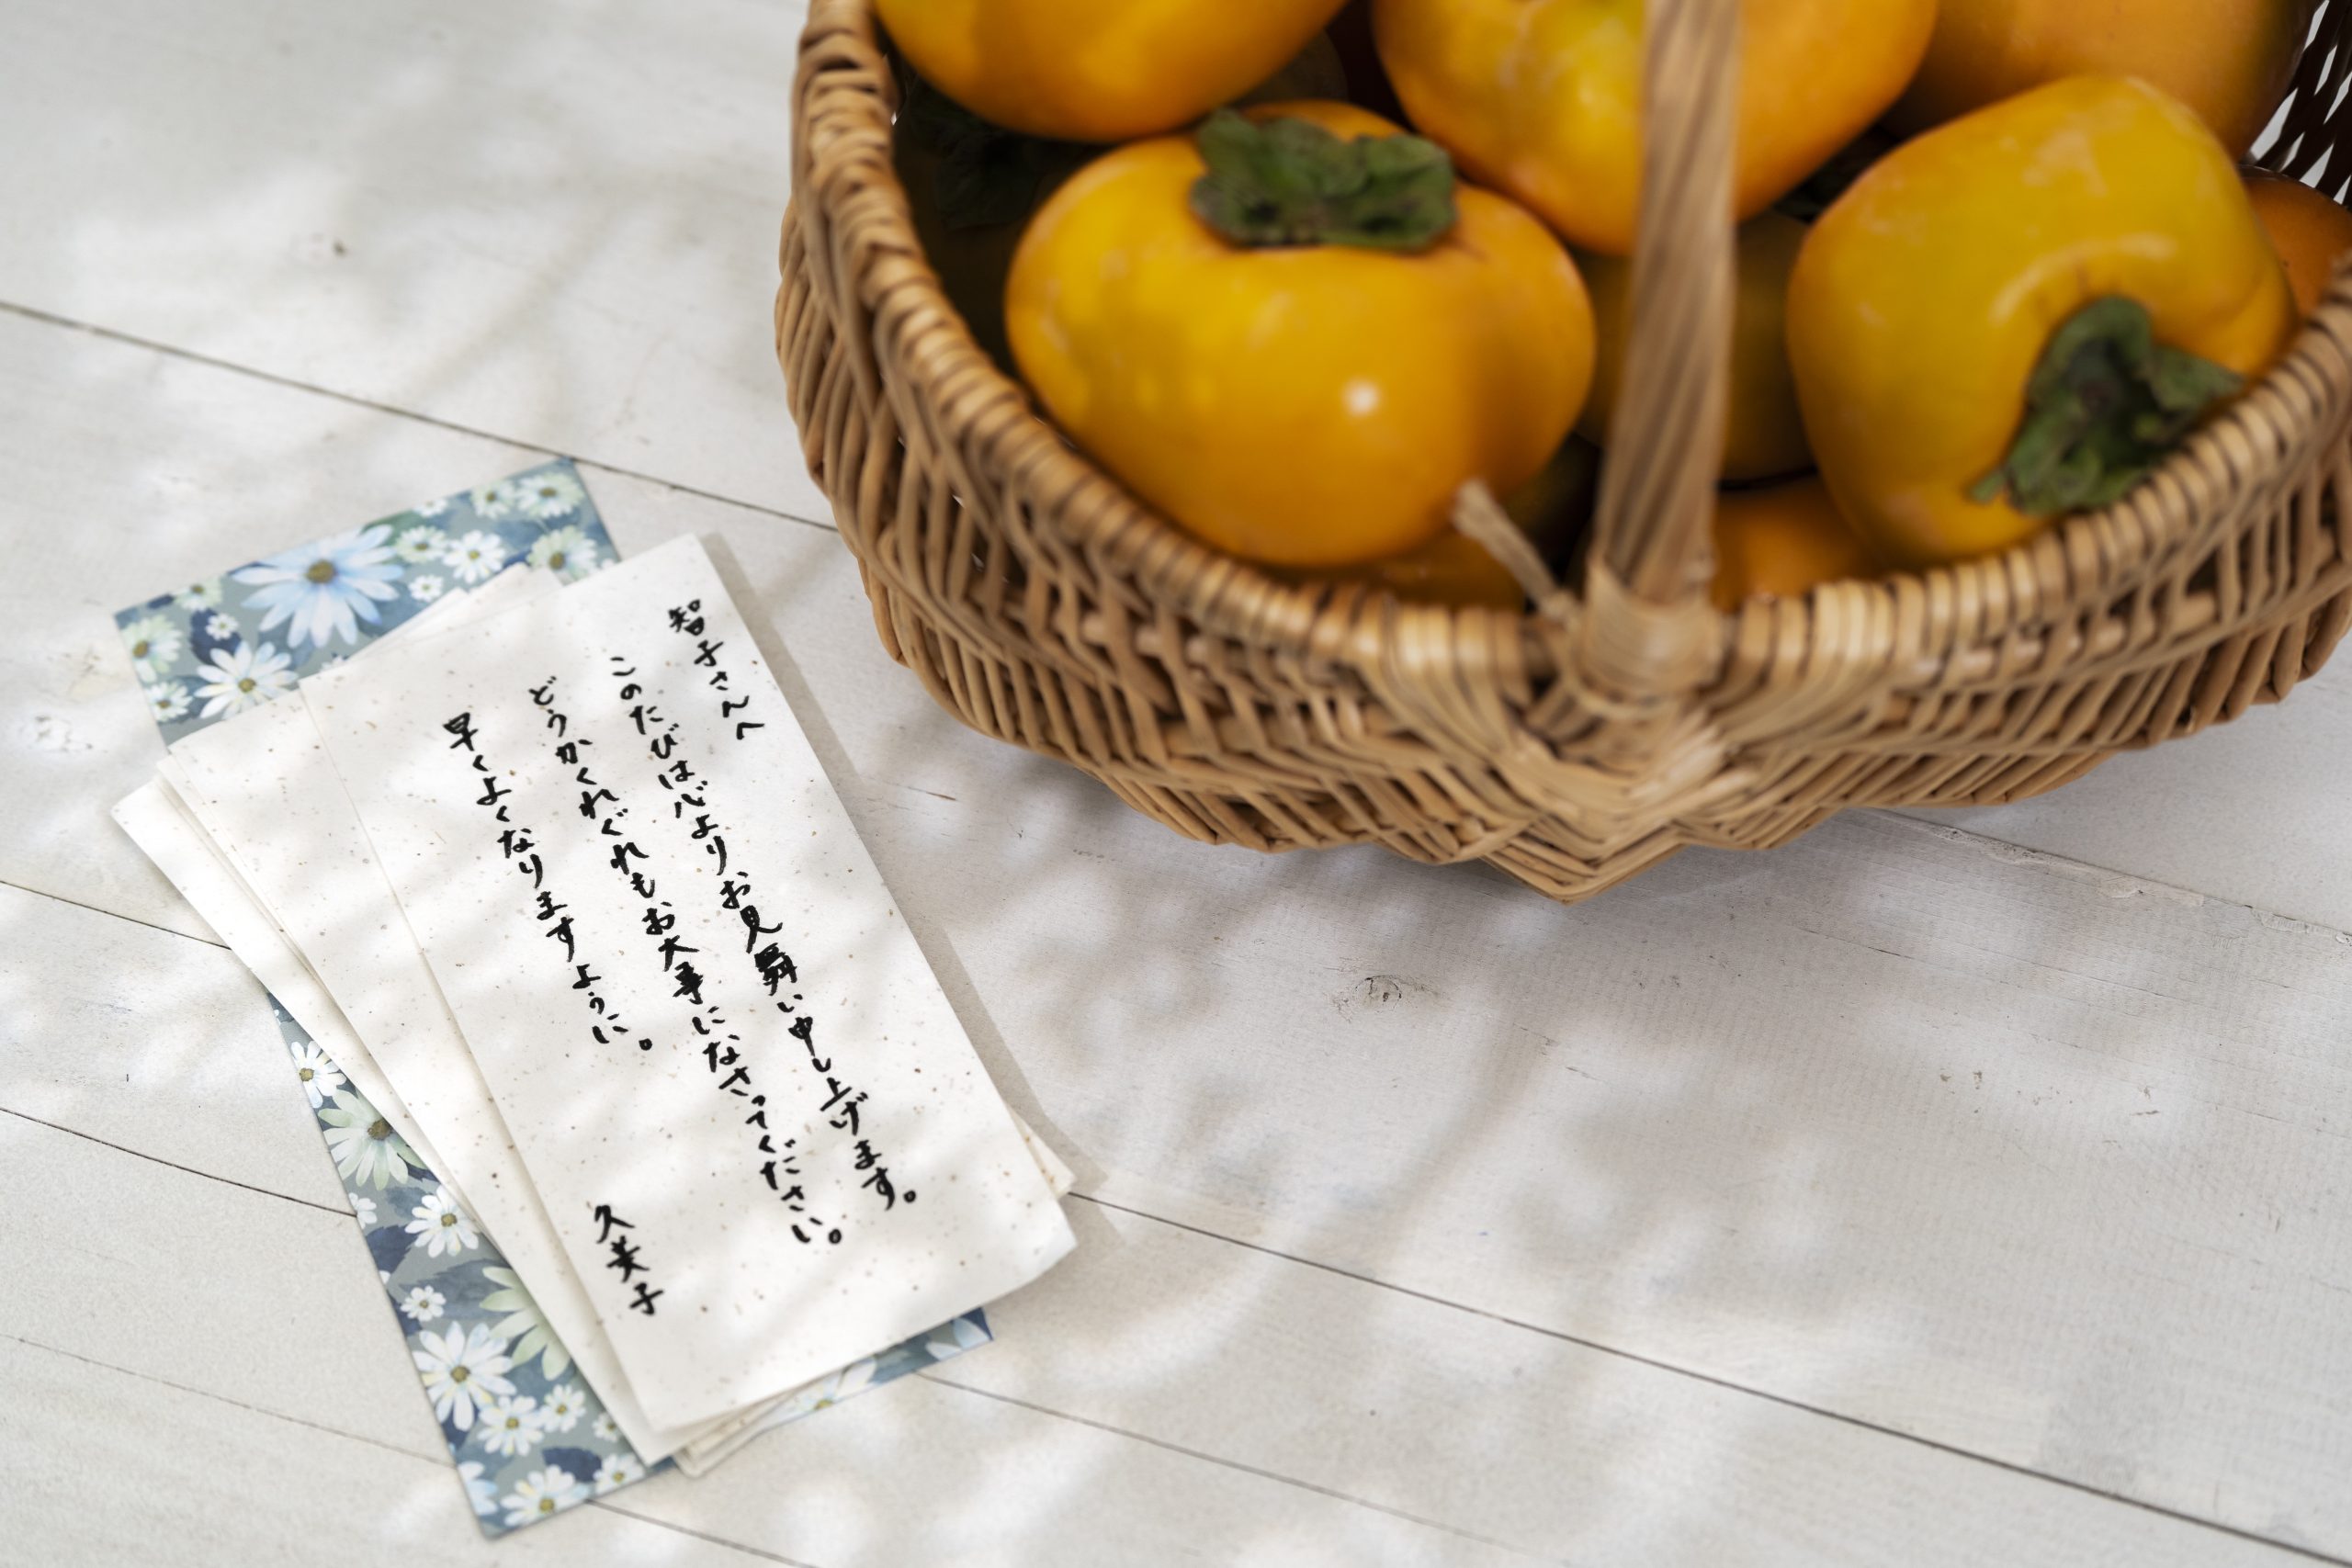 智子さんへ
このたびは心よりお見舞い申し上げます。
どうかくれぐれもお大事になさってください。
早くよくなりますように。
久美子